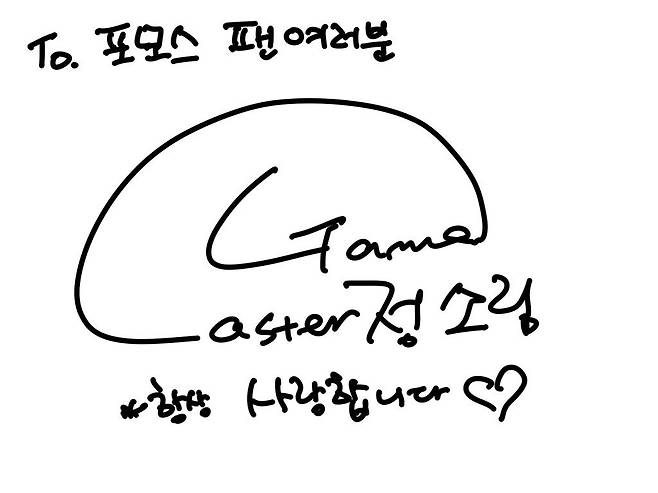 To. 포모스 팬여러분
Game
Caster 정소림
*항상 사랑합니다 ♡